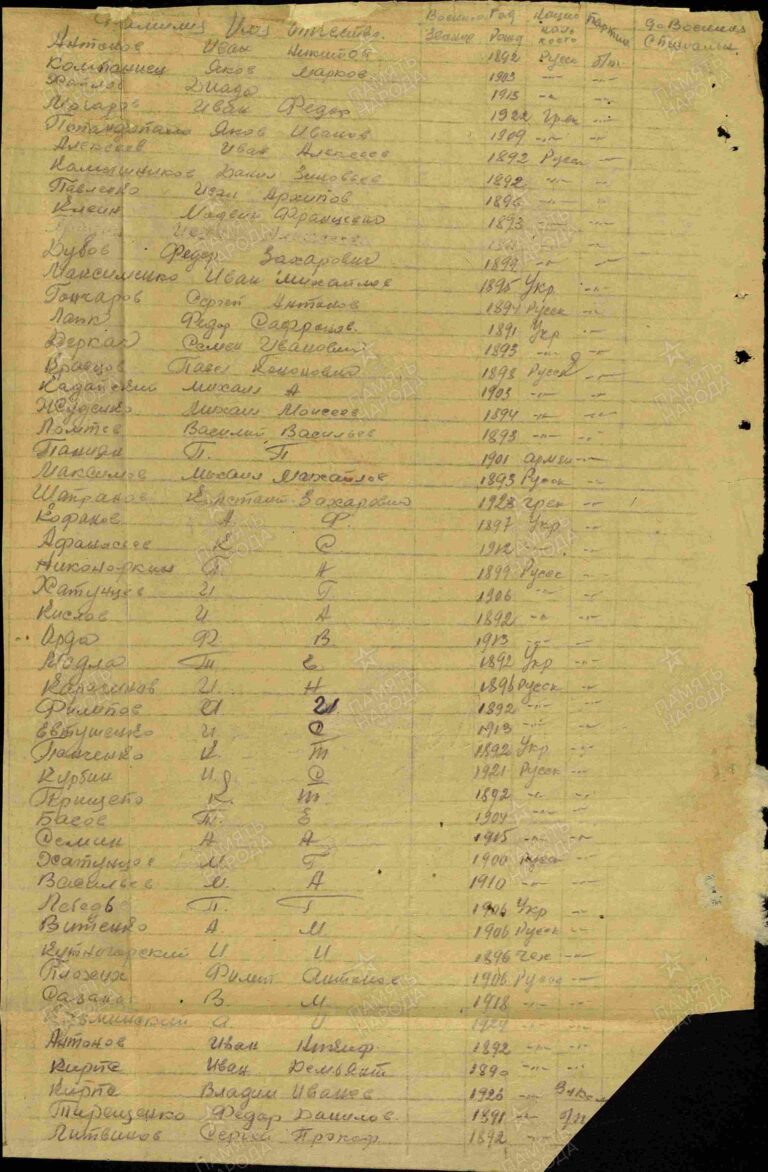 Фамилия Имя отчество. Военное Звание Год Рожд Нацио наль ность Партия до Военная Специальн.
Антонов Иван Никитов 1892 Русск б/п
Компаниец Яков Марков. 1903 -"- -"-
Диадо 1913 -"- -"-
Иван Федор 1922 Грек -"-
Яков Иванов 1909 -"- -"-
Алексеев Иван Алексеев 1892 Русск -"-
Камышников Данил Зиновьев 1892 -"- -"-
Павленко Иван Архипов 1896 -"- -"-
Клейн Францевич 1893 -"- -"-
Дубов Федор Захарович 1899 -"- -"-
Максименко Иван Михайлов 1895 Укр -"-
Гончаров Сергей Антонов 1894 Русск -"-
Федор Сафронов. 1891 Укр -"-
Деркач Семен Иванович 1893 -"- -"-
Кравцов Павел Кононович 1898 Русск -"-
Михаил А 1903 -"- -"-
Жуденко Михаил Моисеев 1894 -"- -"-
Василий Васильев 1893 -"- -"-
П. П 1901 армен -"-
Максимов Михаил Михайлов 1893 Русск -"-
Шапранов Константин Захарович 1928 Грек -"-
Кофанов А Ф 1897 Укр -"-
Афанасьев К С 1912 -"- -"-
Никоноркин П. А 1899 Русск -"-
Хатунцев И Г 1906 -"- -"-
Кислов И А 1892 -"- -"-
Арда Ф В 1913 -"- -"-
Модла Т Е 1892 Укр -"-
И Н 1896 Русск -"-
Филипов И И 1892 -"- -"-
Евтушенко И С 1913 -"- -"-
Панченко К Т 1892 Укр -"-
Курбин И С 1921 Русск -"-
Прищепо К. Т. 1892 -"- -"-
Басов Т. Е 1904 -"- -"-
Семин А А 1905 -"- -"-
Хатунцов М Г 1900 Русск -"-
Васильев М. А 1910 -"- -"-
Лебедь П. Г 1906 Укр -"-
Витенко А М 1906 Русск -"-
Кутногорский И И 1896 Чех -"-
Плохих Филип Антонов 1906 Русск -"-
В. М 1918 -"- -"-
Антонов Иван 1892 -"- -"-
Кирпа Иван Демьян 1890 -"- -"-
Кирпа Владим Иванов 1926 -"-
Тирещенко Федор Данилов. 1891 -"- б/п
Литвинов Сергей Прокоф 1892 -"- -"-
ПАМЯТЬ НАРОДА